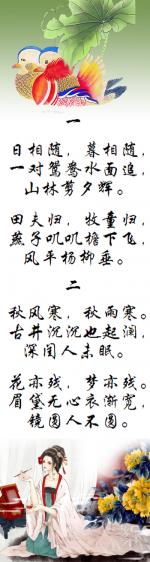 一
日相随，暮相随，
一对鸳鸯水面追，
山林剪夕辉。
田夫归，牧童归，
燕子叽叽檐下飞，
风平杨柳垂。
二
秋风寒，秋雨寒。
古井沉沉也起澜，
深闺人未眠。
花亦残，梦亦残。
眉黛无心衣渐宽，
镜圆人不圆。